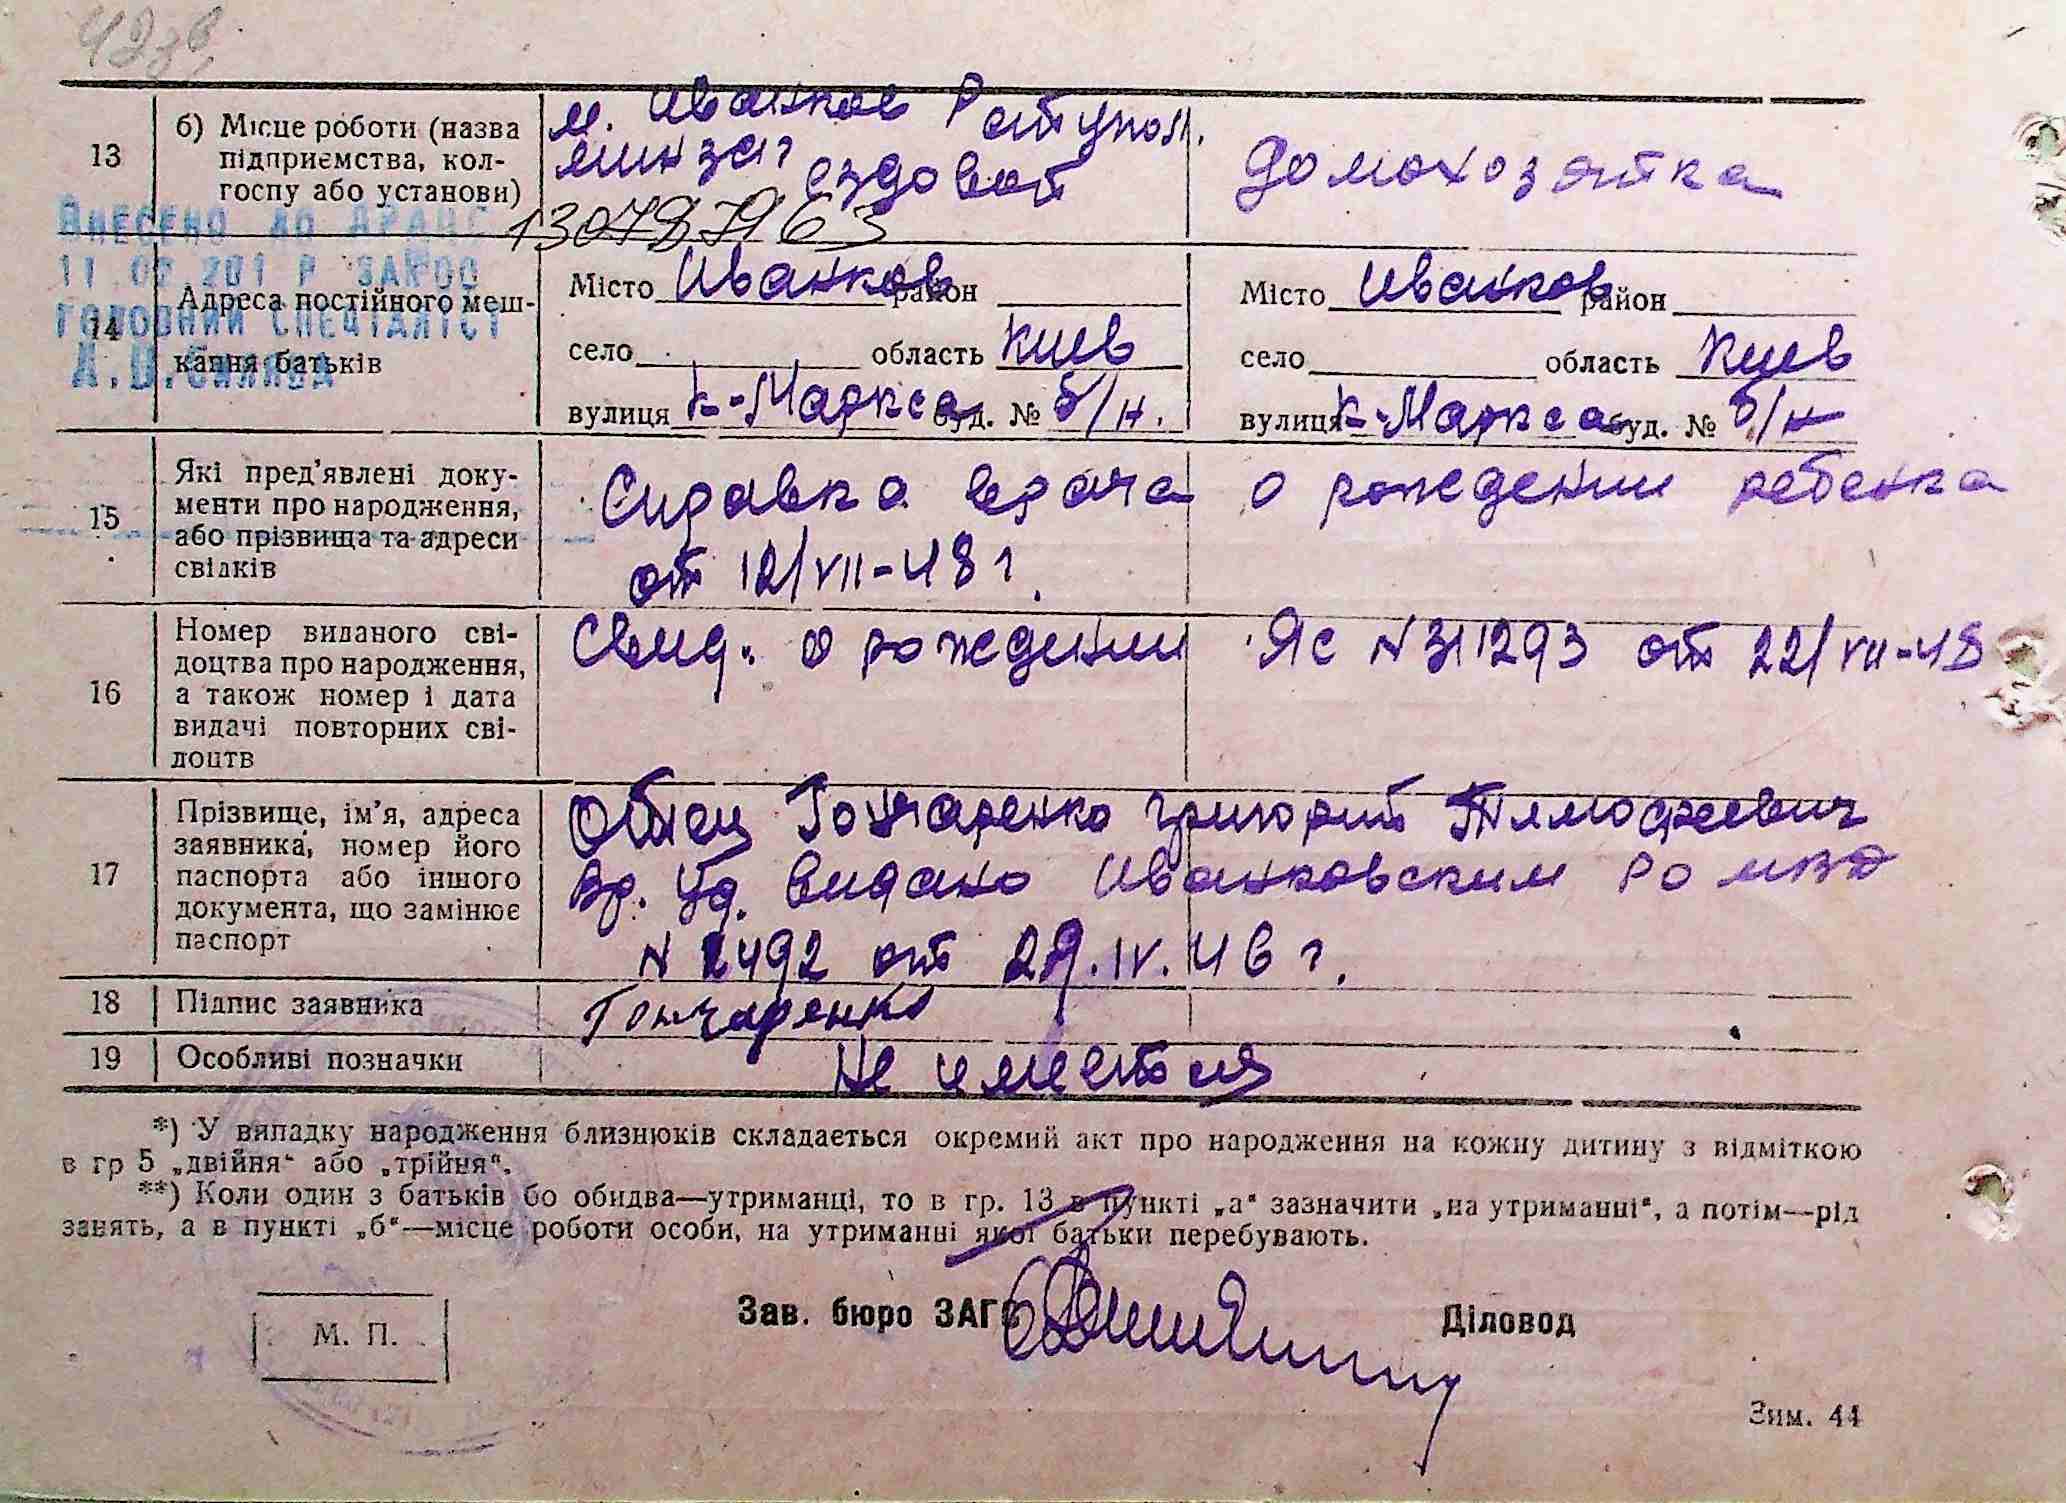 42зв
13
б) Місце роботи (назва підприємства, колгоспу або установи)
м. Иванков
ездовой
домохозяйка
13078 7163
Внесено до ДРАЦС
Головний спеціаліст
14
Адреса постійного мешкання батьків
Місто Иванков район
село область Киев
вулиця К-Маркса буд. № б/н.
Місто Иванков район
село область Киев
вулиця К-Маркса буд. № б/н
15
Які пред'явлені документи про народження, або прізвища та адреси свідків
Справка врача о рождении ребенка
от 12/VII-48 г.
16
Номер виданого свідоцтва про народження, а також номер і дата видачі повторних свідоцтв
Свид. о рождении Яс N 311293 от 22/VII-48
17
Прізвище, ім'я, адреса заявника, номер його паспорта або іншого документа, що замінює паспорт
Отец Гончаренко Григорий Тимофеевич
Вр. Уд. видано Иванковским РО МВД
N 2492 от 29.IV.46 г.
18
Підпис заявника
Гончаренко
19
Особливі позначки
Не имеется
*) У випадку народження близнюків складається окремий акт про народження на кожну дитину з відміткою
в гр 5 „двійня“ або „трійня“.
**) Коли один з батьків бо обидва—утриманці, то в гр. 13 в пункті „а“ зазначити „на утриманні“, а потім—рід
занять, а в пункті „б“—місце роботи особи, на утриманні якої батьки перебувають.
М. П.
Зав. бюро ЗАГС
Діловод
Зим. 44